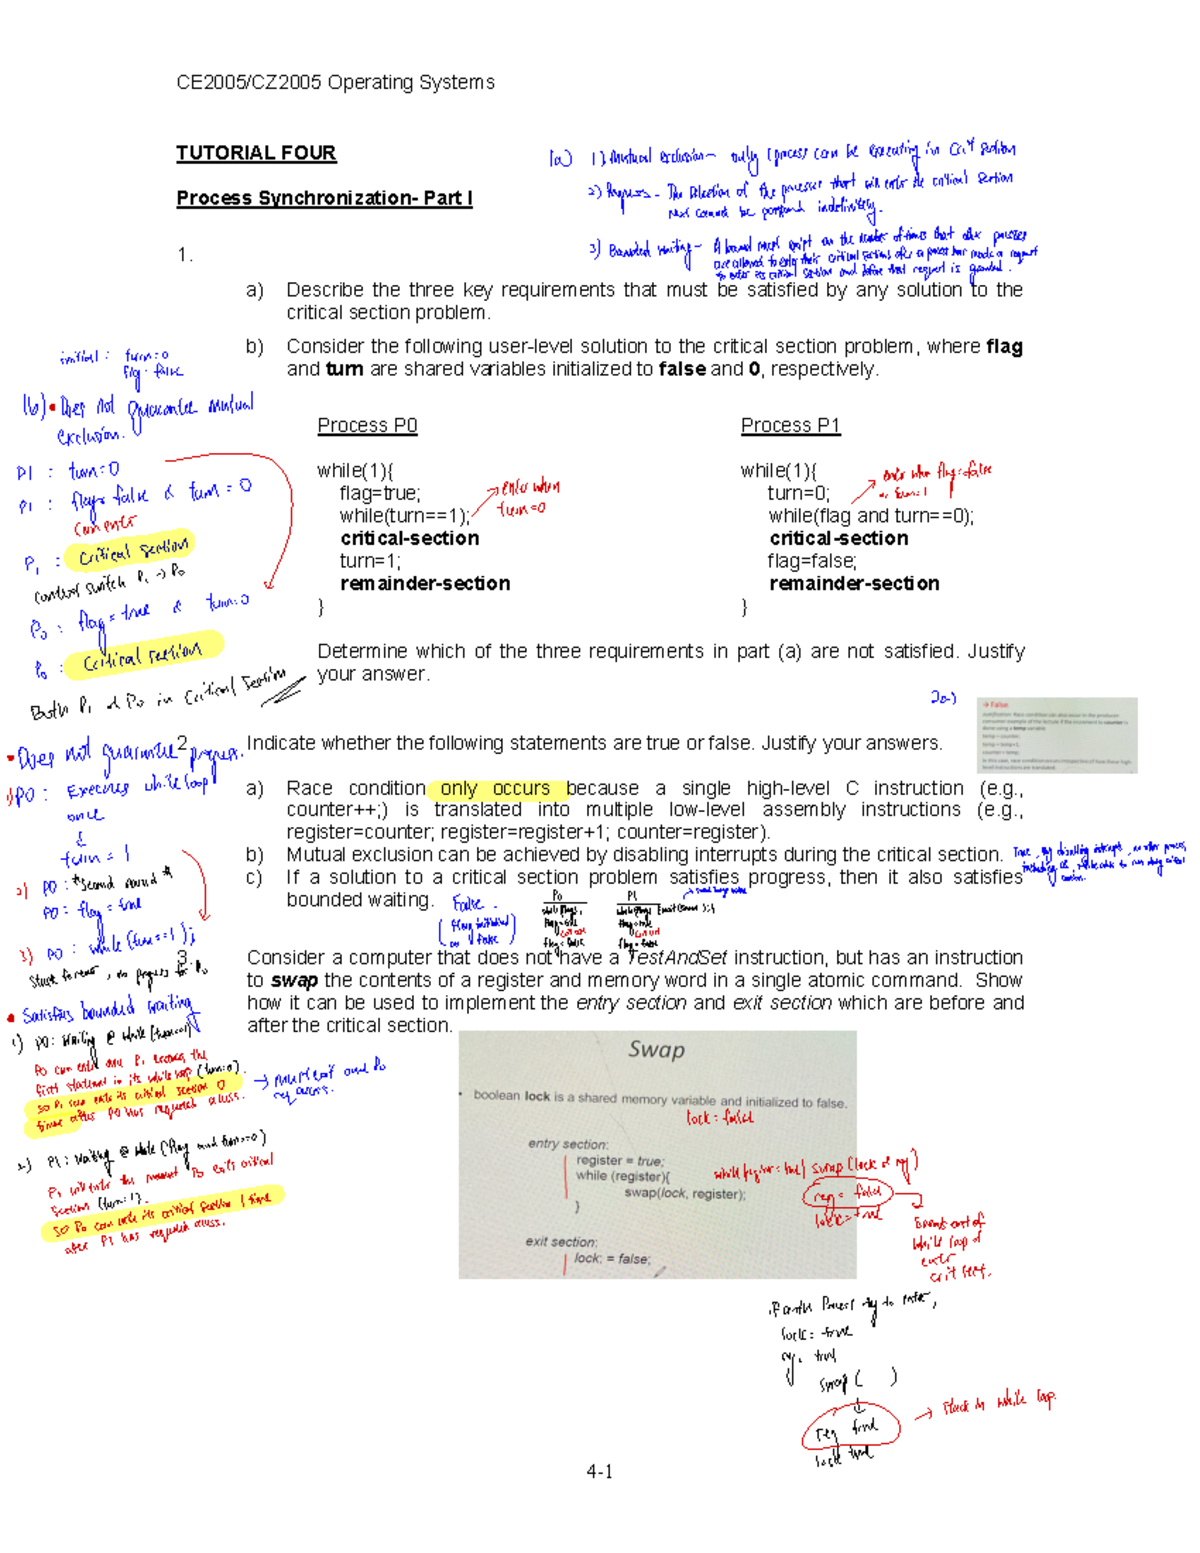 CE2005/CZ2005 Operating Systems
TUTORIAL FOUR
Process Synchronization- Part I
1a) 1) Mutual exclusion - only 1 process can be executing in crit section
2) Progress - The selection of the processes that will enter the critical section
next cannot be postponed indefinitely.
3) Bounded waiting - A bound must exist on the number of times that other processes
are allowed to enter their critical sections after a process has made a request
to enter its critical section and before that request is granted.
1.
a) Describe the three key requirements that must be satisfied by any solution to the
critical section problem.
b) Consider the following user-level solution to the critical section problem, where flag
and turn are shared variables initialized to false and 0, respectively.
initial: turn=0
flag=false
1b) • Does not guarantee mutual
exclusion.
P1 : turn=0
P1 : flag=false & turn=0
can enter
P1 : Critical section
context switch P1 → P0
P0 : flag=true & turn=0
P0 : Critical section
Both P1 & P0 in critical section
Process P0
while(1){
flag=true;
while(turn==1);
critical-section
turn=1;
remainder-section
}
→ enter when
turn=0
Process P1
while(1){
turn=0;
while(flag and turn==0);
critical-section
flag=false;
remainder-section
}
enter when flag=false
or turn=1
Determine which of the three requirements in part (a) are not satisfied. Justify
your answer.
2a)
→ False.
Justification: Race condition can also occur in the producer
consumer example of the lecture if the increment to counter is
done using a temp variable
temp = counter;
temp = temp+1;
counter = temp;
In this case, race condition occurs irrespective of how these high-
level instructions are translated.
• Does not guarantee progress.
1) P0: Executes while loop
once
↓
turn = 1
2) P0: "Second round"
P0: flag=true
3) P0: while(turn==1);
Stuck forever, no progress for P0
2. Indicate whether the following statements are true or false. Justify your answers.
a) Race condition only occurs because a single high-level C instruction (e.g.,
counter++;) is translated into multiple low-level assembly instructions (e.g.,
register=counter; register=register+1; counter=register).
b) Mutual exclusion can be achieved by disabling interrupts during the critical section.
True, by disabling interrupts, no other process,
c) If a solution to a critical section problem satisfies progress, then it also satisfies
bounded waiting.
False.
(flag initialised
as false)
P0 P1
while(flag);
flag=true
crit sect
flag=false
flag=true
crit sect
flag=false
3. Consider a computer that does not have a TestAndSet instruction, but has an instruction
to swap the contents of a register and memory word in a single atomic command. Show
how it can be used to implement the entry section and exit section which are before and
after the critical section.
• Satisfies bounded waiting
1) P0: Waiting @ while(turn==1)
P0 can enter once P1 executes the
first statement in its while loop (turn=0).
So P1 can enter its critical section 0
times after P0 has requested access.
2) P1: Waiting @ while(flag and turn==0)
P1 will enter the moment P0 exits critical
section (turn=1).
So P0 can enter its critical section 1 time
after P1 has requested access.
Swap
• boolean lock is a shared memory variable and initialized to false.
lock=false
entry section:
register = true;
while (register){
swap(lock, register);
}
exit section:
lock: = false;
while(register=true) swap(lock & reg)
reg = false
lock=true
Exits out of
while loop &
enter
crit sect.
If another Process try to enter,
lock=true
reg = true
swap( )
↓
reg true
lock true
→ stuck in while loop.
4-1